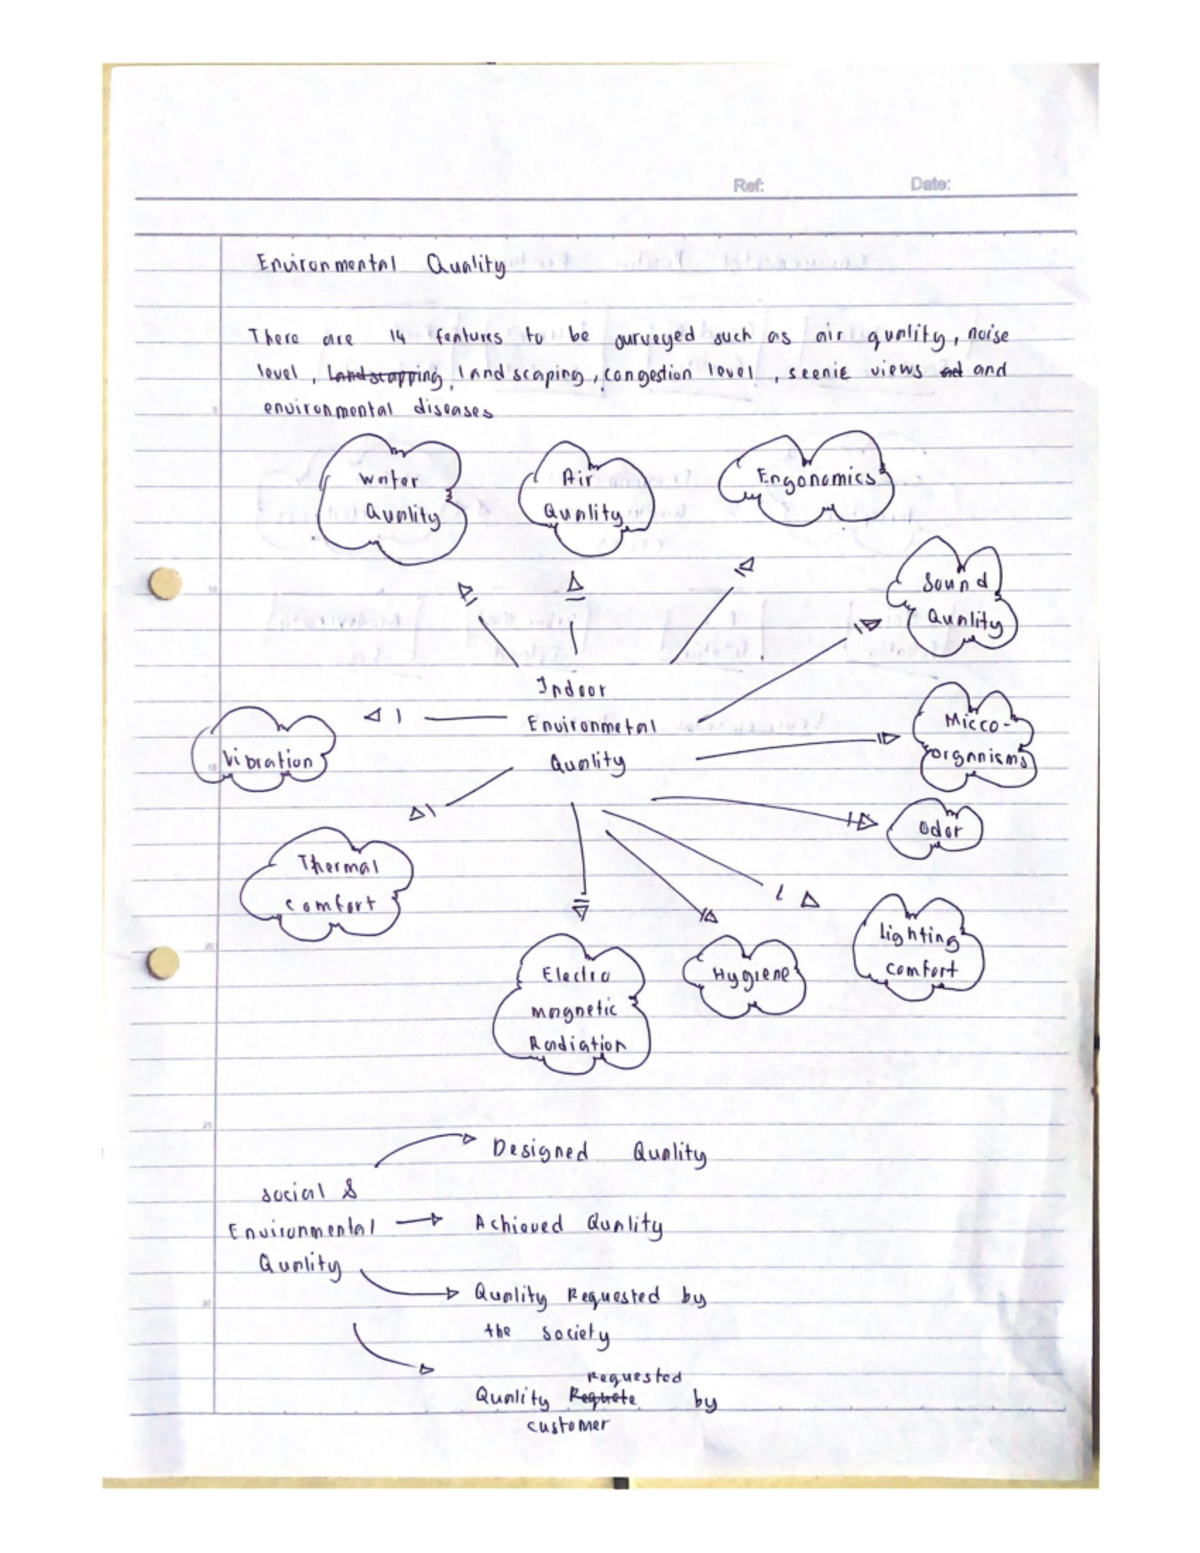 Ref: Date:
Environmental Quality
There are 14 features to be surveyed such as air quality, noise
level, landscapping, landscaping, congestion level, scenic views ad and
environmental diseases
Water
Quality
Air
Quality
Ergonomics
Sound
Quality
Indoor
Environmetal
Quality
Micco-
organisms
Vibration
Odor
Thermal
comfort
lighting
comfort
Electro
magnetic
Radiation
Hygiene
Designed Quality
social &
Environmental
Quality
Achieved Quality
Quality Requested by
the society
requested
Quality Requete by
customer
5
10
15
20
25
30